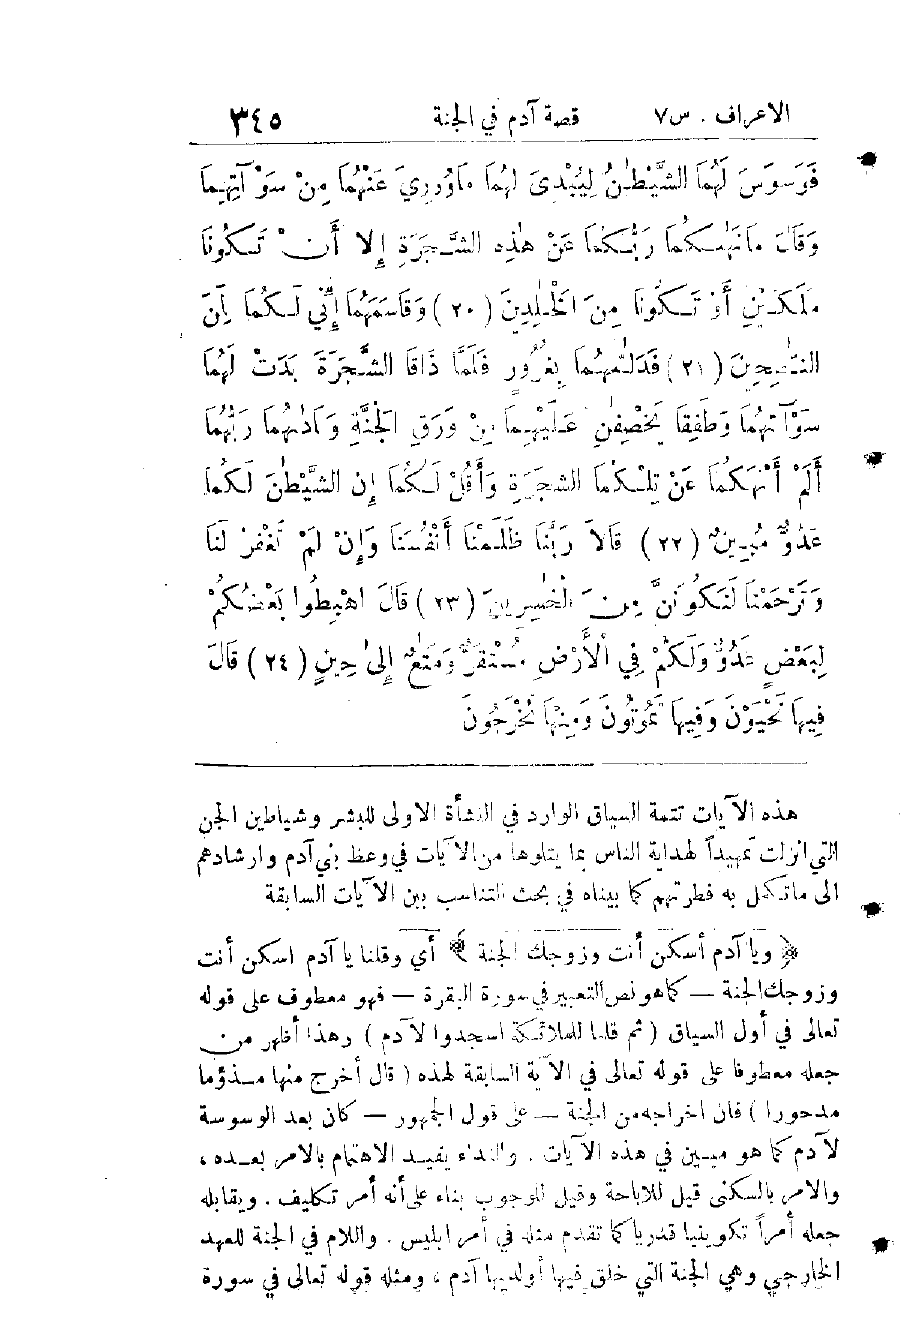 الاعراف . س٧ قصة آدم في الجنة ٣٤٥
فَوَسْوَسَ لَهُمَا الشَّيْطٰنُ لِيُبْدِىَ لَهُمَا مَاوُورِيَ عَنْهُمَا مِنْ سَوْآتِهِمَا
وَقَالَ مَانَهٰىكُمَا رَبُّكُمَا عَنْ هٰذِهِ الشَّجَرَةِ إِلا أَنْ تَكُونَا
مَلَكَيْنِ أَوْ تَكُونَا مِنَ الْخٰلِدِينَ ( ٢٠ ) وَقَاسَمَهُمَا إِنِّي لَكُمَا لَمِنَ
النّٰصِحِينَ ( ٢١ ) فَدَلّٰىهُمَا بِغُرُورٍ فَلَمَّا ذَاقَا الشَّجَرَةَ بَدَتْ لَهُمَا
سَوْآتُهُمَا وَطَفِقَا يَخْصِفٰنِ عَلَيْهِمَا مِنْ وَرَقِ الْجَنَّةِ وَنَادٰىهُمَا رَبُّهُمَا
أَلَمْ أَنْهَكُمَا عَنْ تِلْكُمَا الشَّجَرَةِ وَأَقُلْ لَكُمَا إِن الشَّيْطٰنَ لَكُمَا
عَدُوٌّ مُبِينٌ ( ٢٢ ) قَالاَ رَبَّنَا ظَلَمْنَا أَنْفُسَنَا وَإِنْ لَمْ تَغْفِرْ لَنَا
وَتَرْحَمْنَا لَنَكُونَنَّ مِنَ الْخٰسِرِينَ ( ٢٣ ) قَالَ اهْبِطُوا بَعْضُكُمْ
لِبَعْضٍ عَدُوٌّ وَلَكُمْ فِي الْأَرْضِ مُسْتَقَرٌّ وَمَتٰعٌ إِلىٰ حِينٍ ( ٢٤ ) قَالَ
فِيهَا تَحْيَوْنَ وَفِيهَا تَمُوتُونَ وَمِنْهَا تُخْرَجُونَ
هذه الآيات تتمة السياق الوارد في النشأة الاولى للبشر وشياطين الجن
التي انزلت تمهيداً لهداية الناس بما يتلوها من الآيات في وعظ بني آدم وارشادهم
الى ما تكمل به فطرتهم كما بيناه في بحث التناسب بين الآيات السابقة
﴿ ويا آدم أسكن أنت وزوجك الجنة ﴾ أي وقلنا يا آدم اسكن أنت
وزوجك الجنة — كما هو نص التعبير في سورة البقرة — فهو معطوف على قوله
تعالى في أول السياق ( ثم قلنا للملائكة اسجدوا لآدم ) وهذا أظهر من
جعله معطوفا على قوله تعالى في الآية السابقة لهذه ( قال أخرج منها مذؤما
مدحورا ) فان اخراجه من الجنة — على قول الجمهور — كان بعد الوسوسة
لآدم كما هو مبين في هذه الآيات . والنداء يفيد الاهتمام بالامر بعده ،
والامر بالسكنى قيل للاباحة وقيل للوجوب بناء على أنه أمر تكليف . ويقابله
جعله أمراً تكوينيا قدريا كما تقدم مثله في أمر ابليس . واللام في الجنة للعهد
الخارجي وهي الجنة التي خلق فيها أو لديها آدم ، ومثله قوله تعالى في سورة